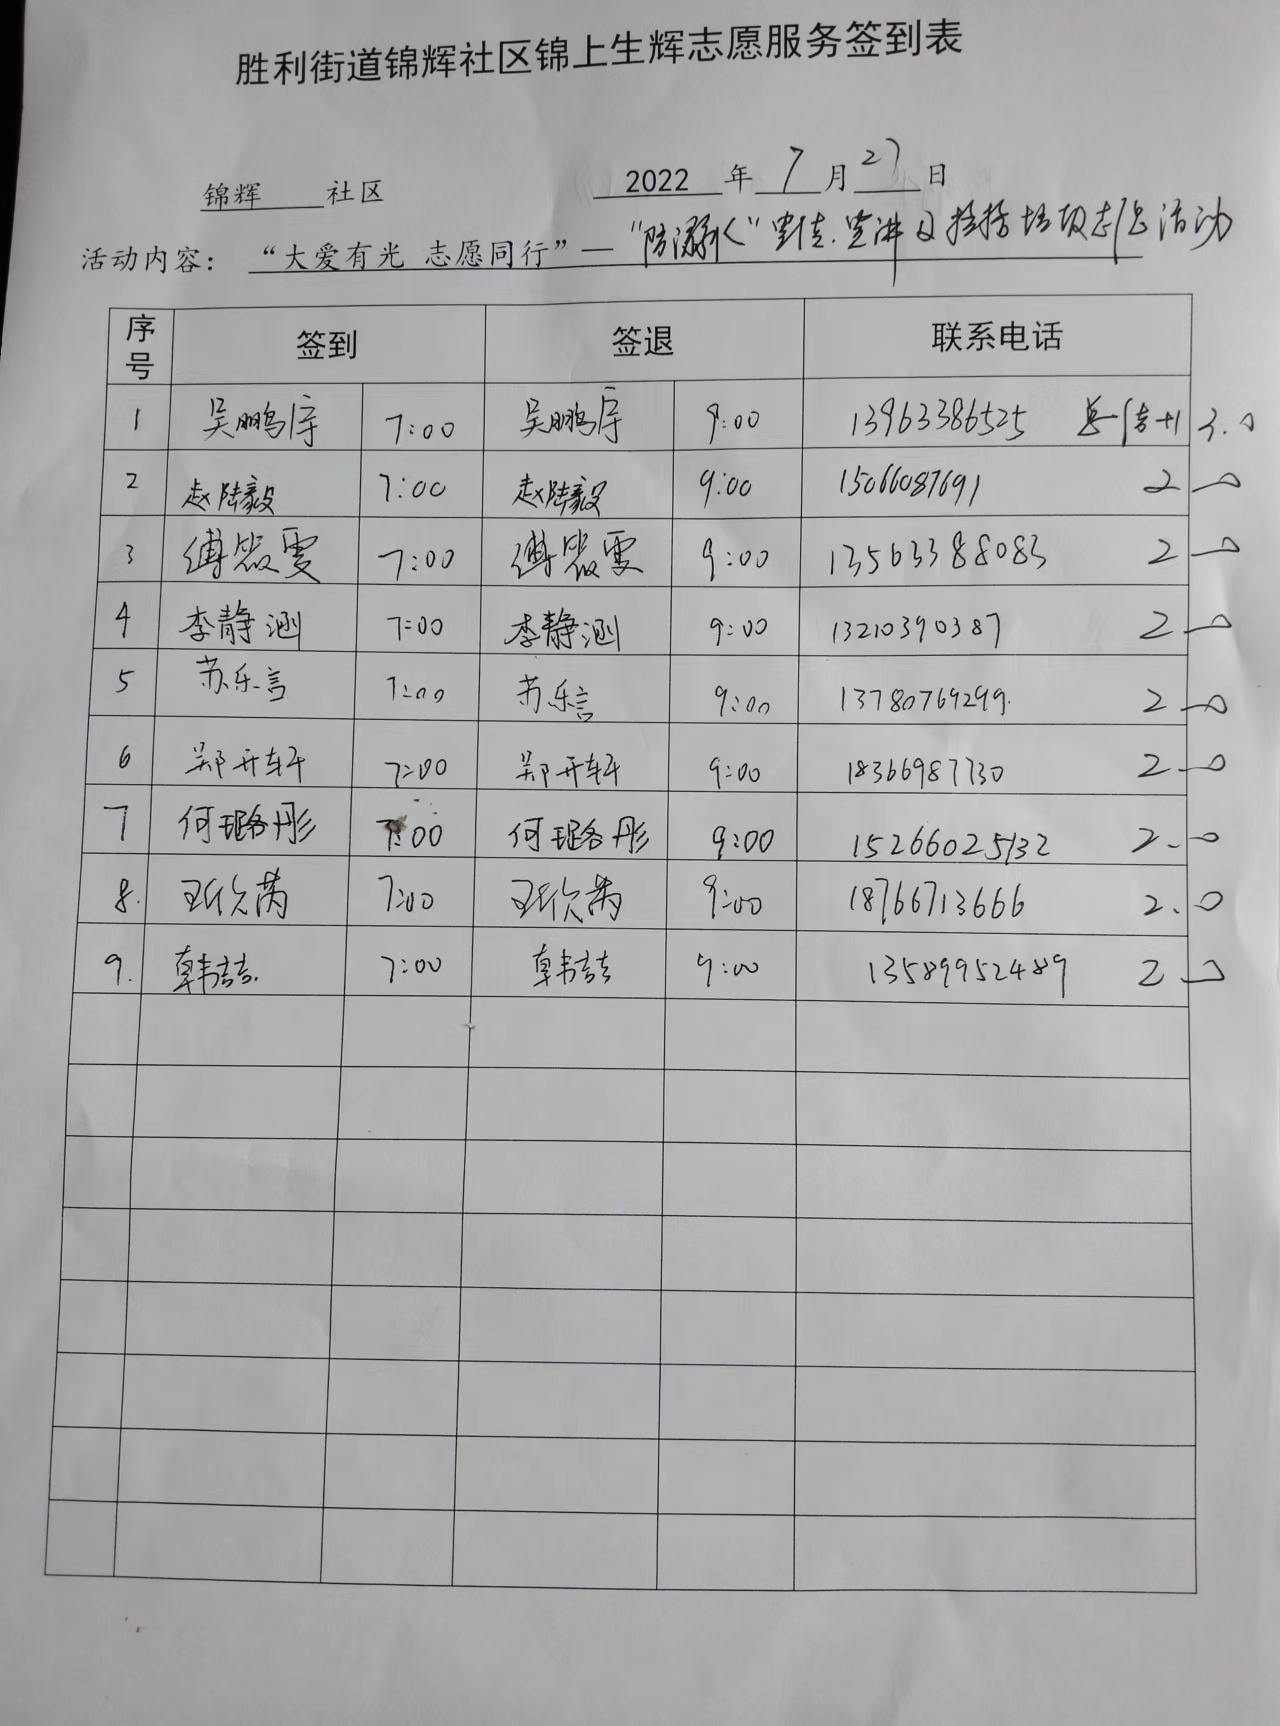 胜利街道锦辉社区锦上生辉志愿服务签到表
锦辉 社区 2022 年 7 月 27 日
活动内容: “大爱有光 志愿同行”— “防溺水” 活动
序号 签到 签退 联系电话
1 吴鹏 7:00 吴鹏 9:00 13963386525 3.0
2 赵陆毅 7:00 赵陆毅 9:00 15066087691 2.0
3 傅 雯 7:00 傅 雯 9:00 13563388083 2.0
4 李静涵 7:00 李静涵 9:00 13210390387 2.0
5 苏乐言 7:00 苏乐言 9:00 13780769299 2.0
6 郑开轩 7:00 郑开轩 9:00 18366987730 2.0
7 何璐彤 7:00 何璐彤 9:00 15266025132 2.0
8. 王欣芮 7:00 王欣芮 9:00 18766713666 2.0
9. 韩喆 7:00 韩喆 9:00 13589952489 2.0